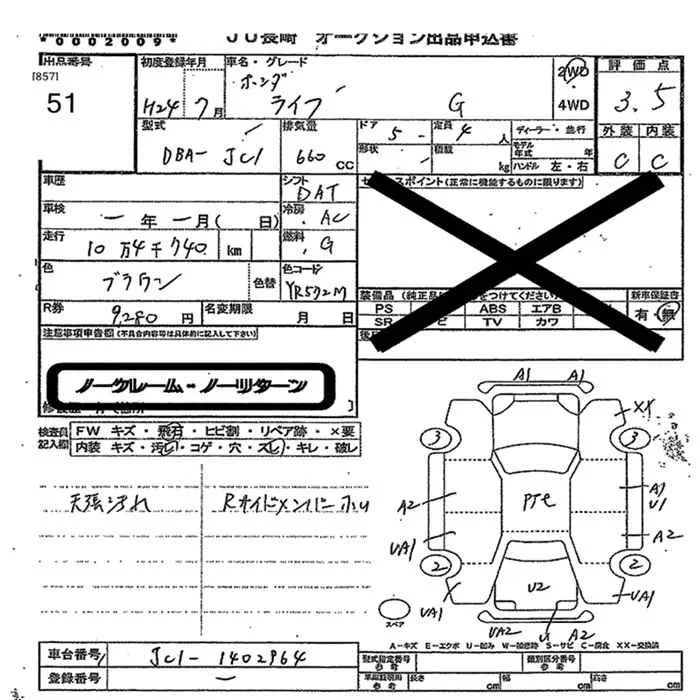 *0002009*
JU長崎 オークション出品申込書
出品番号
[857]
51
初度登録年月
H24 7月
車名・グレード
ホンダ
ライフ G
2WD
4WD
評価点
3.5
外装 内装
C C
型式
DBA- JC1
排気量
660 CC
ドア 5 - 定員 4 人
形状 - 積載 kg
ディーラー・並行
モデル年式 年
ハンドル 左・右
車歴
シフト
DAT
車検
- 年 - 月( 日)
冷房
AC
走行
10万4千740 km
燃料
G
色
ブラウン 色替
色コード
YR572M
R券
9,280 円
名変期限
月 日
スポイント(正常に機能するものに限ります)
装備品
新車保証書
有・無
PS ABS エアB
SR TV カワ
注意事項申告欄(不具合内容等は具体的に記入して下さい)
ノークレーム・ノーリターン
検査員記入欄
FW キズ・飛石・ヒビ割・リペア跡・×要
内装 キズ・汚レ・コゲ・穴・スレ・キレ・破レ
天張汚れ
Rサイドメンバー
A1 A1
XX
3 3
A2 A1
U1
PTセ
UA1 A2
2 2
UA1 U2 UA1
UA2 U A2
スペア
A−キズ E−エクボ U−凹み W−補修跡 S−サビ C−腐食 XX−交換済
車台番号
JC1- 1402964
登録番号
-
型式指定番号
参考
類別区分番号
参考
参考
長さ cm 幅 cm 高さ cm